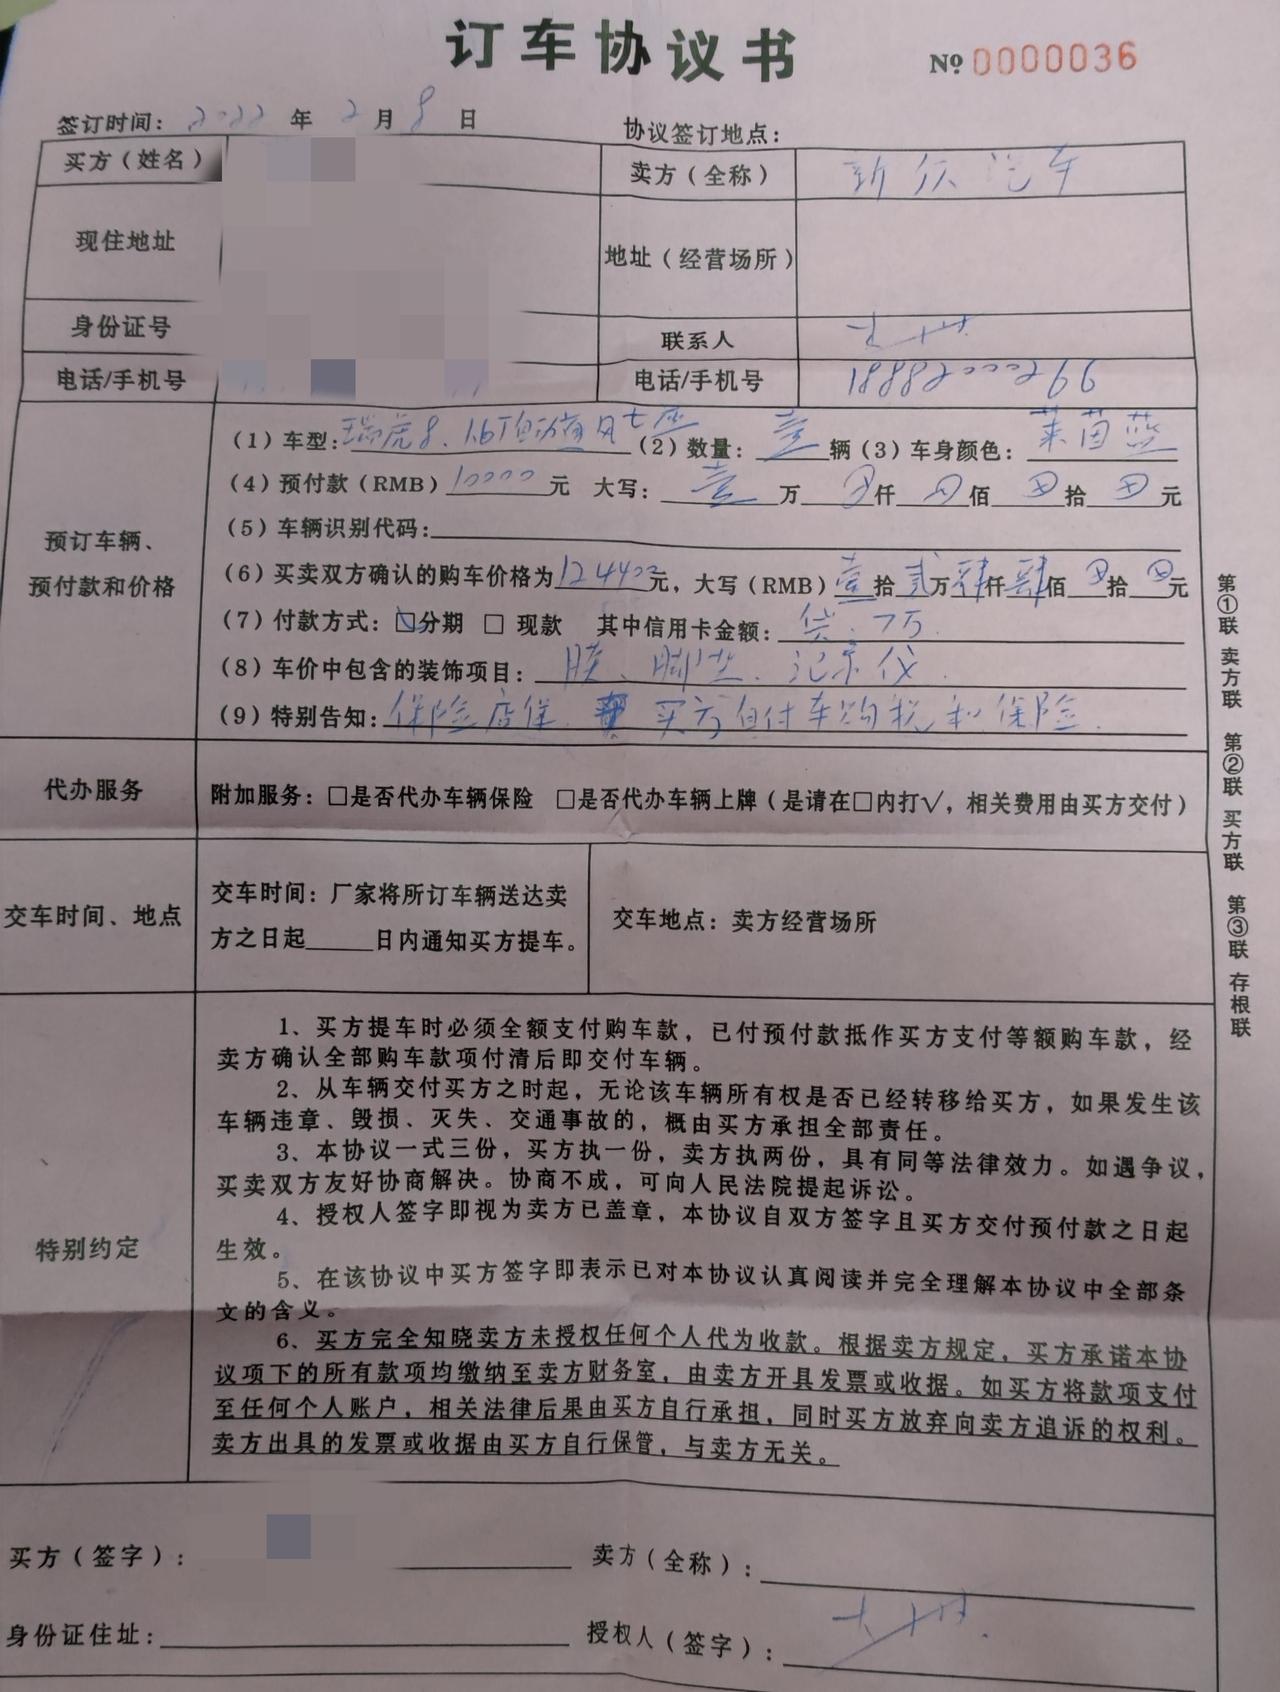 订车协议书
№ 0000036
签订时间: 2022 年 2 月 8 日 协议签订地点:
买方（姓名） 卖方（全称） 新 汽车
现住地址 地址（经营场所）
身份证号 联系人
电话/手机号 电话/手机号
预订车辆、预付款和价格
（1）车型: 瑞虎8、1.6T自动 风七座 （2）数量: 壹 辆（3）车身颜色: 莱茵蓝
（4）预付款（RMB）10000 元 大写: 壹 万 仟 佰 拾 元
（5）车辆识别代码:
（6）买卖双方确认的购车价格为 124400 元，大写（RMB）壹 拾 贰 万 肆 仟 肆 佰 拾 元
（7）付款方式: ☑分期 □ 现款 其中信用卡金额: 贷:7万.
（8）车价中包含的装饰项目: 膜、脚垫、记录仪
（9）特别告知: 保险店保. 买方自付车购税和保险.
代办服务 附加服务: □是否代办车辆保险 □是否代办车辆上牌（是请在□内打√，相关费用由买方交付）
交车时间、地点
交车时间: 厂家将所订车辆送达卖
方之日起 日内通知买方提车。
交车地点: 卖方经营场所
特别约定
1、买方提车时必须全额支付购车款，已付预付款抵作买方支付等额购车款，经
卖方确认全部购车款项付清后即交付车辆。
2、从车辆交付买方之时起，无论该车辆所有权是否已经转移给买方，如果发生该
车辆违章、毁损、灭失、交通事故的，概由买方承担全部责任。
3、本协议一式三份，买方执一份，卖方执两份，具有同等法律效力。如遇争议，
买卖双方友好协商解决。协商不成，可向人民法院提起诉讼。
4、授权人签字即视为卖方已盖章，本协议自双方签字且买方交付预付款之日起
生效。
5、在该协议中买方签字即表示已对本协议认真阅读并完全理解本协议中全部条
文的含义。
6、买方完全知晓卖方未授权任何个人代为收款。根据卖方规定，买方承诺本协
议项下的所有款项均缴纳至卖方财务室，由卖方开具发票或收据。如买方将款项支付
至任何个人账户，相关法律后果由买方自行承担，同时买方放弃向卖方追诉的权利。
卖方出具的发票或收据由买方自行保管，与卖方无关。
买方（签字）: 卖方（全称）:
身份证住址: 授权人（签字）:
第①联 卖方联 第②联 买方联 第③联 存根联